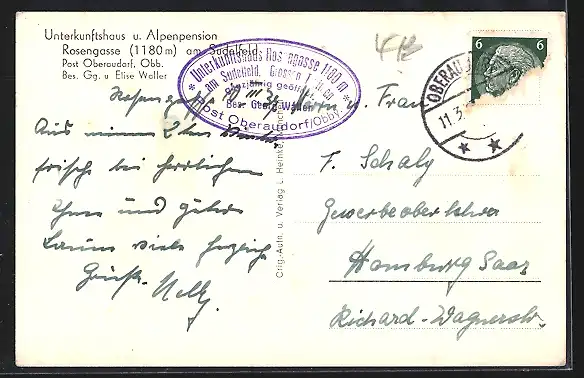 Unterkunftshaus u. Alpenpension
Rosengasse (1180 m) am Sudelfeld
Post Oberaudorf, Obb.
Bes. Gg. u Elise Waller
* Unterkunftshaus Rosengasse 1180 m *
am Sudelfeld, Grosser
ganzjährig geöffnet
Bes. Georg Waller
Post Oberaudorf/Obby.
6 6
OBERAUDORF
11.3.
Rosengasse
Aus meinem 2ten
frische bei herrlichem
Ihnen und
viele herzliche
Grüße. Nelly.
Orig.-Aufn. u. Verlag L. Heinke,
Herrn u. Frau
F. Schaly
Gewerbeoberlehrer
Hamburg Saar
Richard-Wagnerstr.